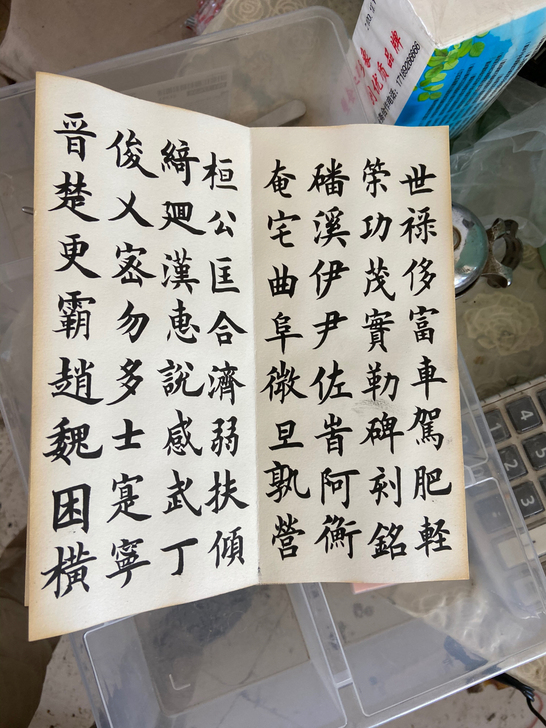 世禄侈富車駕肥軽
策功茂實勒碑刻銘
磻溪伊尹佐旹阿衡
奄宅曲阜微旦孰營
桓公匡合濟弱扶傾
綺迴漢恵說感武丁
俊乂密勿多士寔寧
晉楚更霸趙魏困橫
优质品牌
17189266666
4
5
2
3